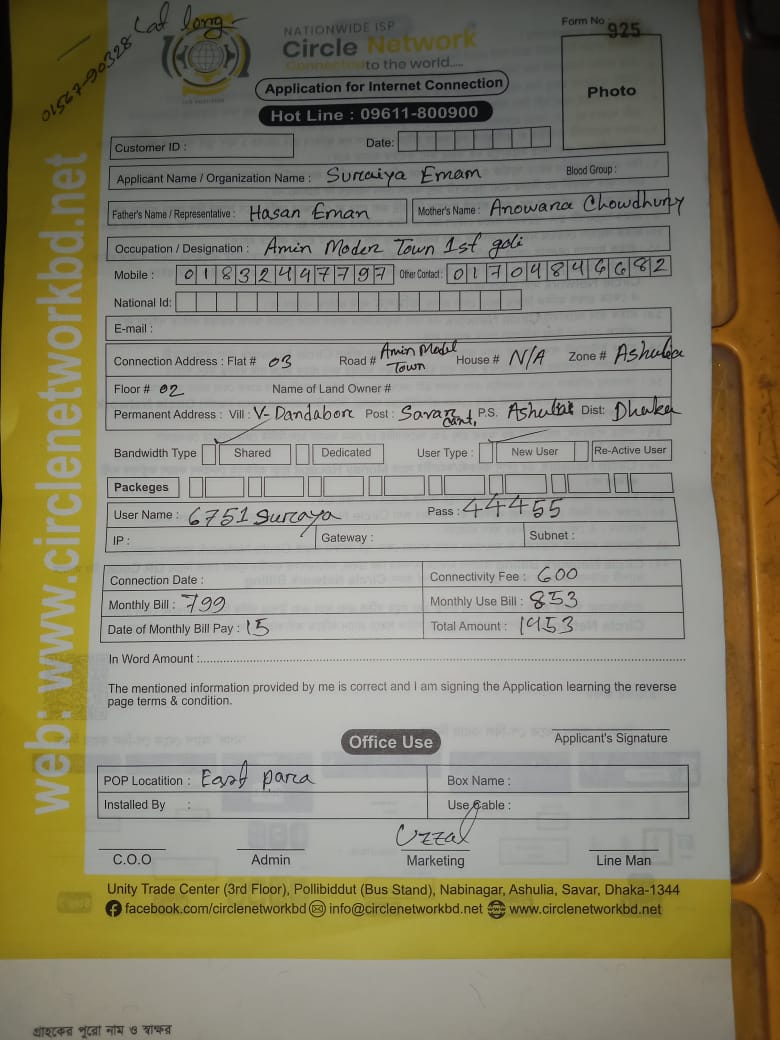 01567-90328 Cat long
NATIONWIDE ISP
Circle Network
Connected to the world.....
Form No 925
Application for Internet Connection
Hot Line : 09611-800900
Photo
Customer ID :
Date:
Applicant Name / Organization Name : Suraiya Emam Blood Group :
Father's Name / Representative : Hasan Eman Mother's Name : Anowara Chowdhury
Occupation / Designation : Amin Moder Town 1st goli
Mobile : 01832447797 Other Contact : 01704846682
National Id:
E-mail :
Connection Address : Flat # 03 Road # Amin Model Town House # N/A Zone # Ashulia
Floor # 02 Name of Land Owner #
Permanent Address : Vill : V- Dandabore Post : Savar cant, P.S. Ashulia Dist: Dhaka
Bandwidth Type Shared Dedicated User Type : New User Re-Active User
Packeges
User Name : 6751 Suraya Pass : 44455
IP : Gateway : Subnet :
Connection Date : Connectivity Fee : 600
Monthly Bill : 799 Monthly Use Bill : 853
Date of Monthly Bill Pay : 15 Total Amount : 1453
In Word Amount :
The mentioned information provided by me is correct and I am signing the Application learning the reverse
page terms & condition.
Applicant's Signature
Office Use
POP Locatition : East para Box Name :
Installed By : Use Cable :
Uzzal
C.O.O Admin Marketing Line Man
Unity Trade Center (3rd Floor), Pollibiddut (Bus Stand), Nabinagar, Ashulia, Savar, Dhaka-1344
facebook.com/circlenetworkbd info@circlenetworkbd.net www.circlenetworkbd.net
web: www.circlenetworkbd.net
গ্রাহকের পুরো নাম ও স্বাক্ষর